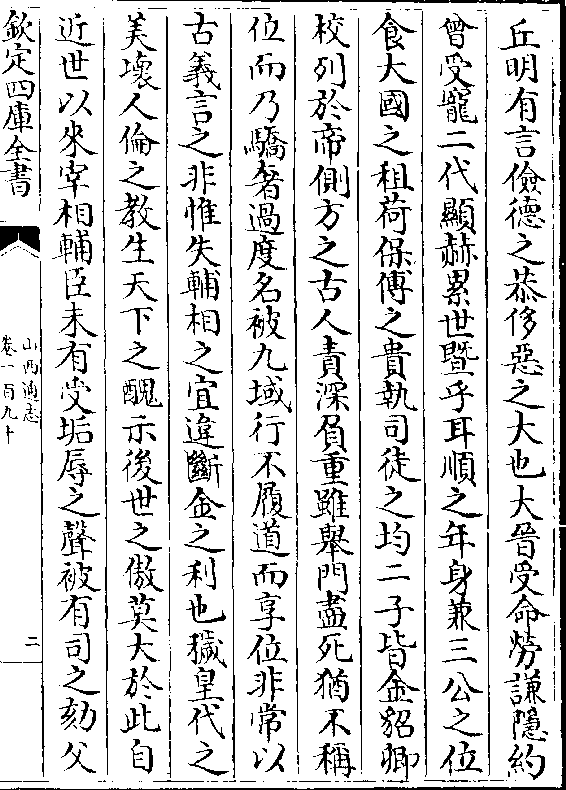 丘明有言儉德之恭侈惡之大也大晉受命勞謙隱約
曾受寵二代顯赫累世暨乎耳順之年身兼三公之位
食大國之租荷保傅之貴執司徒之均二子皆金貂卿
校列於帝側方之古人責深負重雖舉門盡死猶不稱
位而乃驕奢過度名被九域行不履道而享位非常以
古義言之非惟失輔相之宜違斷金之利也穢皇代之
美壞人倫之教生天下之醜示後世之傲莫大於此自
近世以來宰相輔臣未有受垢辱之聲被有司之劾父
欽定四庫全書
山西通志
卷一百九十
二